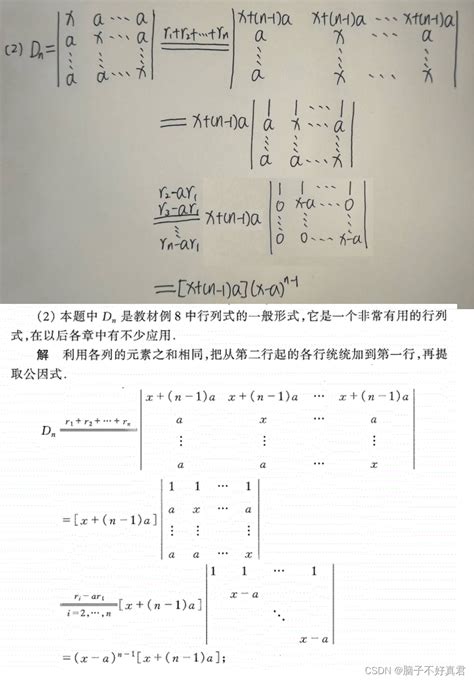 (2) Dn = | x a ⋯ a | r₁+r₂+⋯+rn | x+(n-1)a x+(n-1)a ⋯ x+(n-1)a |
| a x ⋯ a | | a x ⋯ a |
| ⋮ ⋮ ⋮ | | ⋮ ⋮ ⋮ |
| a a ⋯ x | | a x ⋯ x |
= x+(n-1)a | 1 1 ⋯ 1 |
| a x ⋯ a |
| ⋮ ⋮ ⋮ |
| a a ⋯ x |
r₂-ar₁
r₂-ar₁
⋮
rn-ar₁
x+(n-1)a | 1 1 ⋯ 1 |
| 0 x-a ⋯ 0 |
| ⋮ ⋮ ⋮ |
| 0 0 ⋯ x-a |
= [x+(n-1)a](x-a)ⁿ⁻¹
(2) 本题中 Dn 是教材例 8 中行列式的一般形式,它是一个非常有用的行列
式,在以后各章中有不少应用.
解 利用各列的元素之和相同,把从第二行起的各行统统加到第一行,再提
取公因式.
Dn r₁+r₂+⋯+rn | x+(n-1)a x+(n-1)a ⋯ x+(n-1)a |
| a x ⋯ a |
| ⋮ ⋮ ⋮ |
| a a ⋯ x |
=[x+(n-1)a] | 1 1 ⋯ 1 |
| a x ⋯ a |
| ⋮ ⋮ ⋮ |
| a a ⋯ x |
rᵢ-ar₁
i=2,⋯,n
[x+(n-1)a] | 1 1 ⋯ 1 |
| x-a |
| ⋱ |
| x-a |
=(x-a)ⁿ⁻¹[x+(n-1)a];
CSDN @脑子不好真君